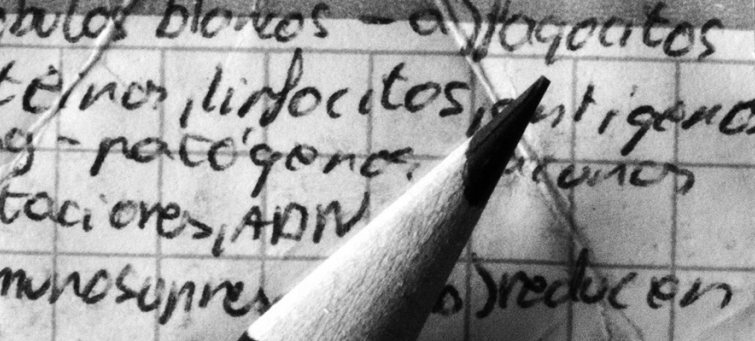 bulos blancos - a) fagocitos
teínas, linfocitos, antígeno
g - patógenos, vacunas
taciones, ADN
munosopres o) reducen